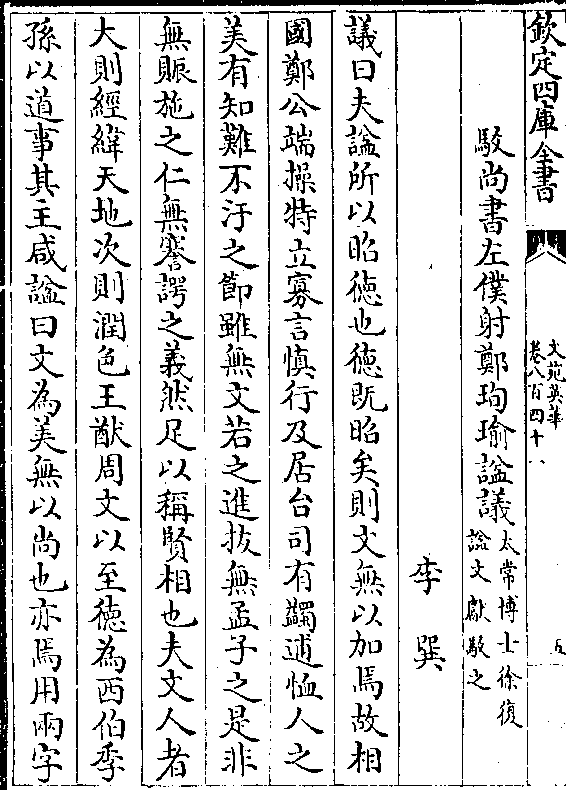 欽定四庫全書
文苑英華
卷八百四十
五
駮尚書左僕射鄭珣瑜諡議太常博士徐復
諡文獻駮之
李巽
議曰夫諡所以昭德也德既昭矣則文無以加焉故相
國鄭公端操特立寡言慎行及居台司有蠲逋恤人之
美有知難不汙之節雖無文若之進拔無孟子之是非
無賑施之仁無謇諤之義然足以稱賢相也夫文人者
大則經緯天地次則潤色王猷周文以至徳為西伯季
孫以道事其主咸諡曰文為美無以尚也亦焉用兩字